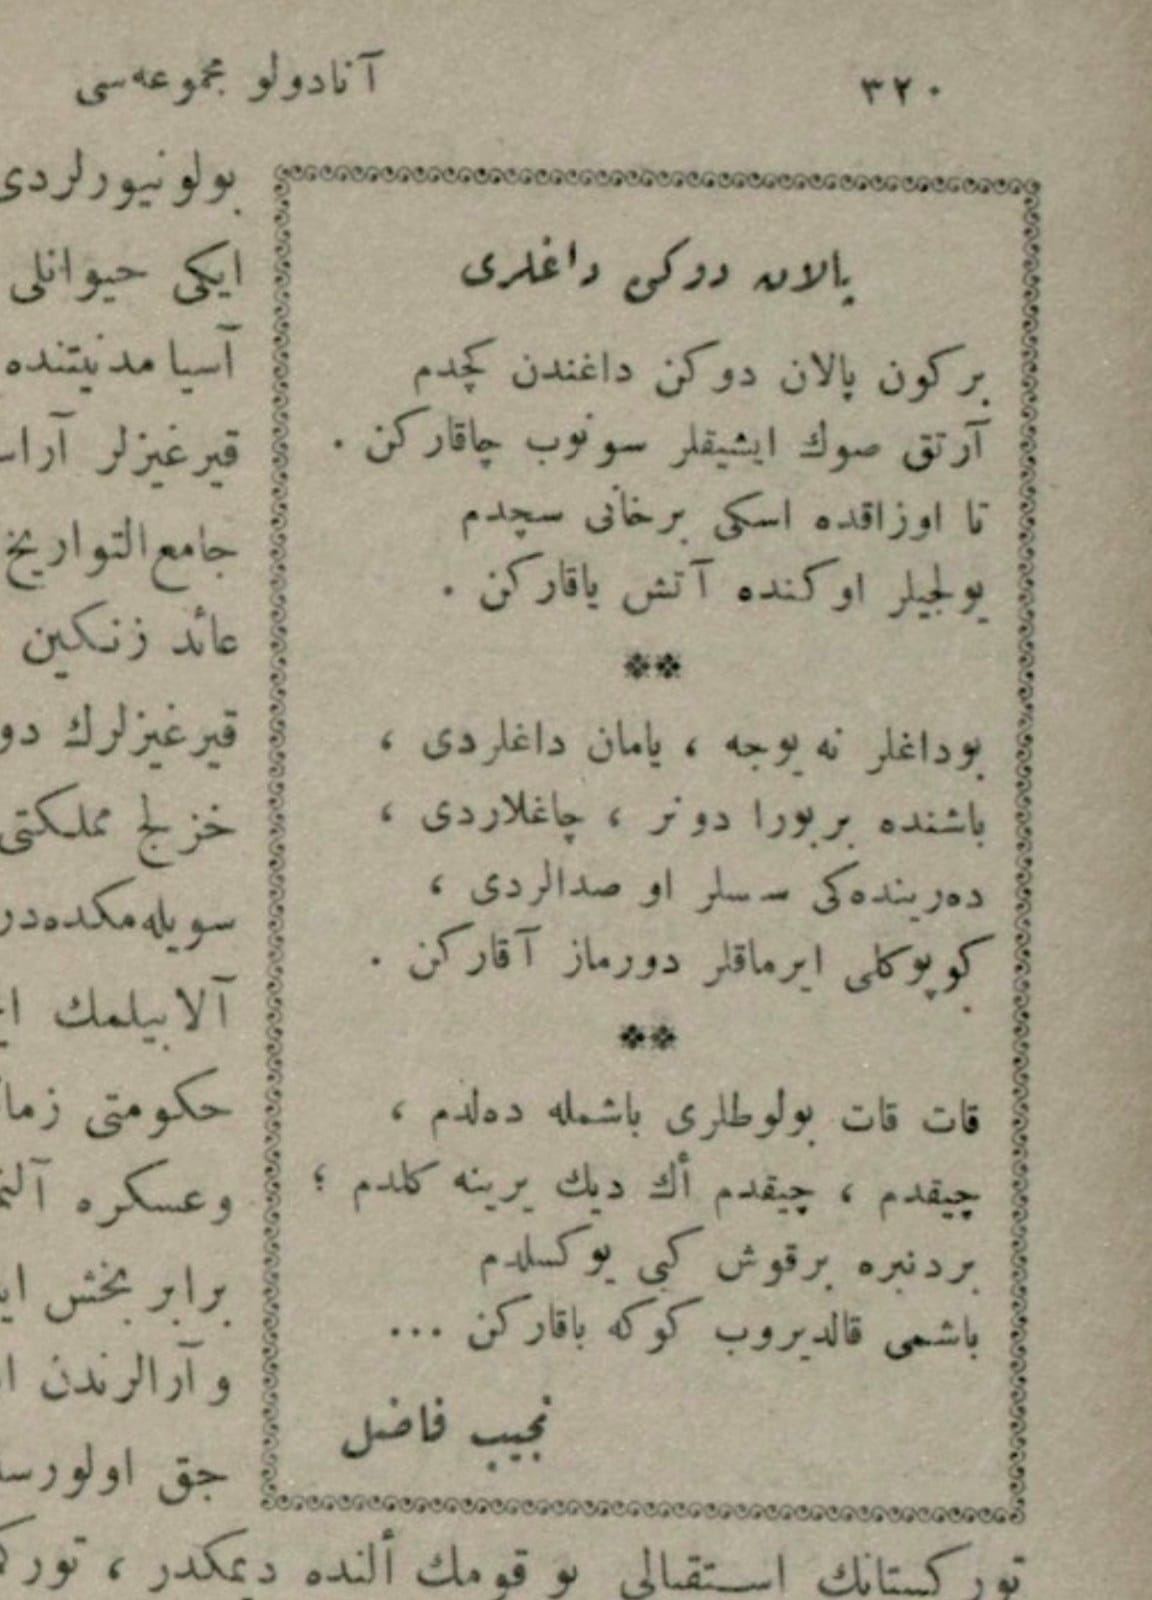 ٣٢٠
آنادولو مجموعه‌سی
پالان دوكن داغلری
بر كون پالان دوكن داغندن كچدم
آرتق صوك ایشیقلر سونوب چاقاركن .
تا اوزاقده اسكی بر خانی سچدم
یولجیلر اوكنده آتش یاقاركن .
بو داغلر نه یوجه ، یامان داغلردی ،
باشنده بر بورا دونر ، چاغلاردی ،
ده‌رینده‌كی سسلر او صدالردی ،
كوپوكلی ایرماقلر دورماز آقاركن .
قات قات بولوطلری باشمله ده‌لدم ،
چیقدم ، چیقدم أك دیك یرینه كلدم ؛
بردنبره بر قوش كبی یوكسلدم
باشمی قالدیروب كوكه باقاركن ...
نجیب فاضل
بولونیورلردی
ایكی حیوانلی
آسیا مدنیتنده
قیرغیزلر
جامع التواریخ
عائد زنكین
قیرغیزلرك
خزلج مملكتی
سویله‌مكده‌در
آلابیلمك
حكومتی
وعسكره
برابر بخش
و آرالرندن
جق
توركستانك استقبالی بو قومك ألنده دیمكدر ،